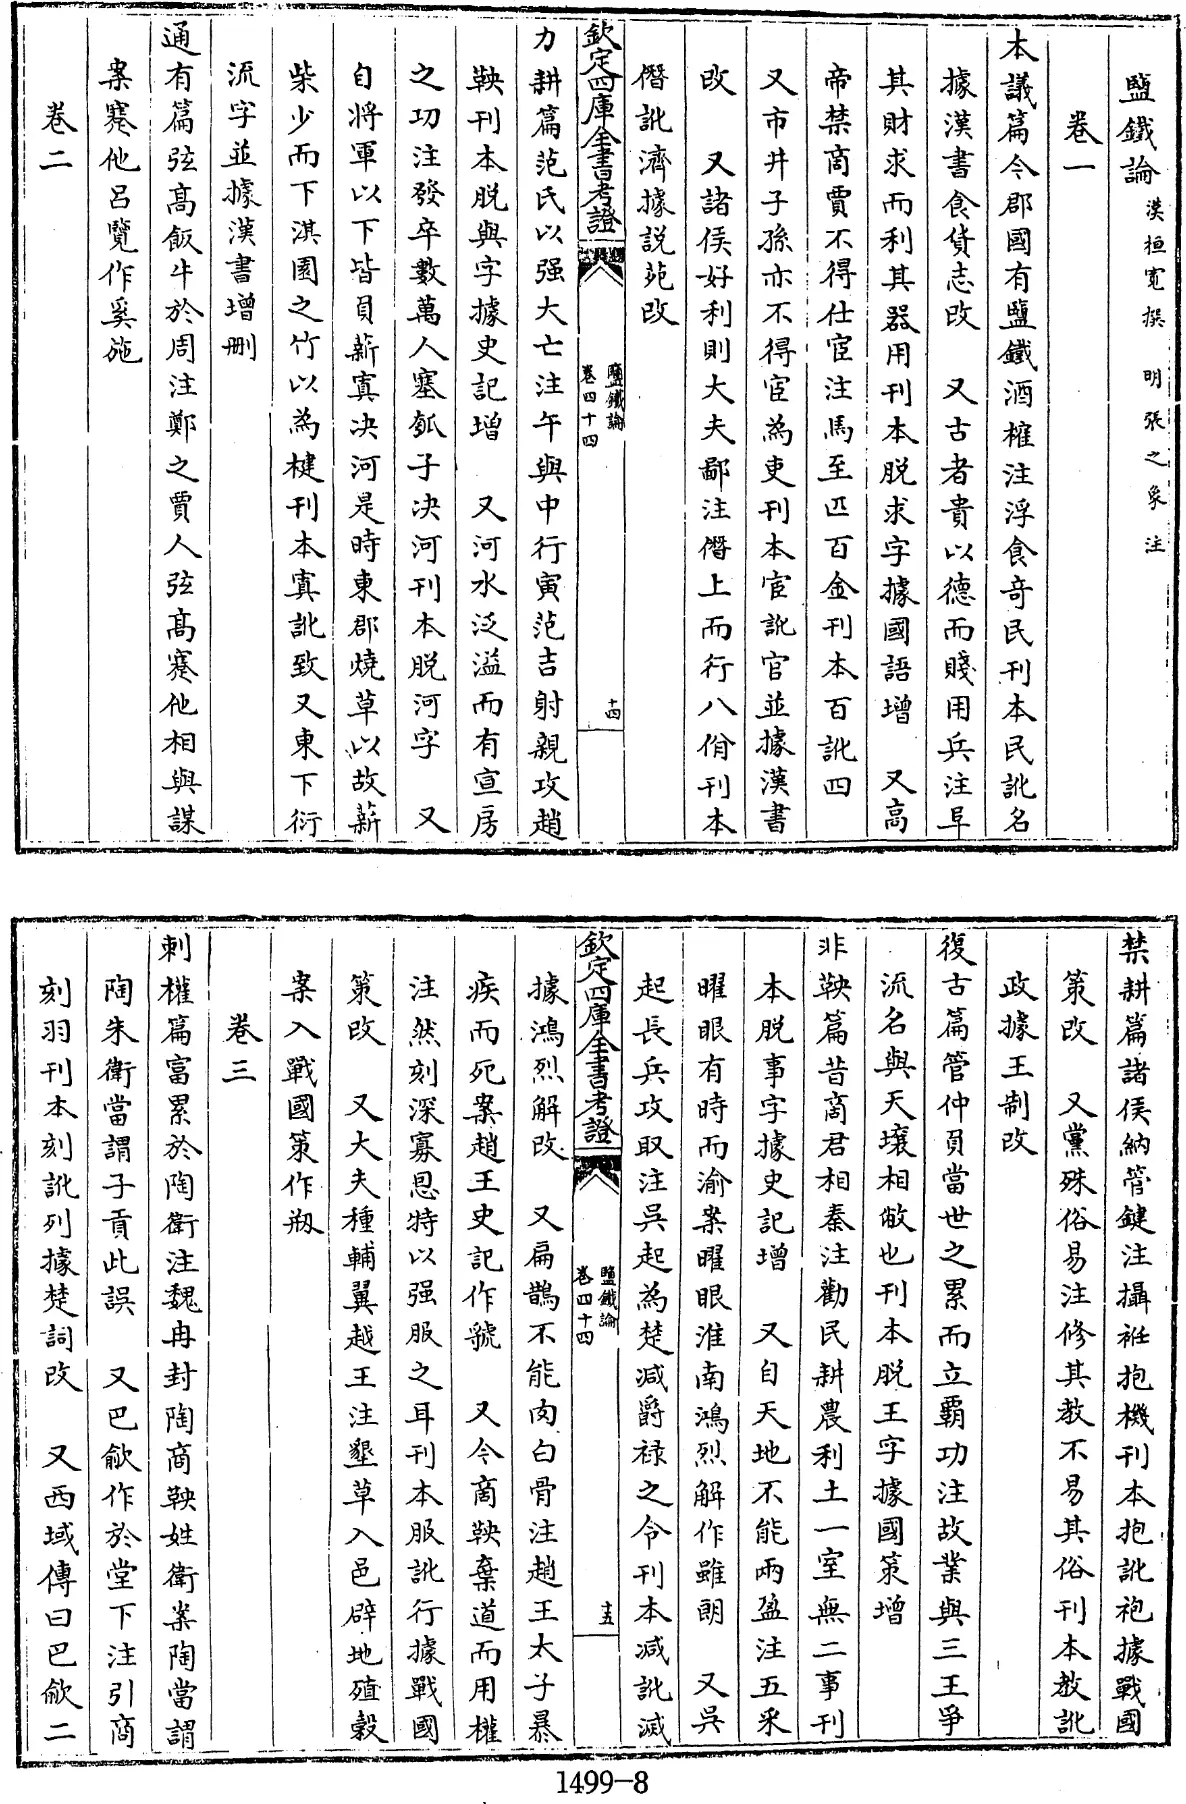 鹽鐵論漢桓寬撰 明張之象注
卷一
本議篇令郡國有鹽鐵酒榷注浮食奇民刊本民訛名
據漢書食貨志改 又古者貴以德而賤用兵注阜
其財求而利其器用刊本脱求字據國語增 又高
帝禁商賈不得仕宦注馬至匹百金刊本百訛四
又市井子孫亦不得宦為吏刊本宦訛官並據漢書
改 又諸侯好利則大夫鄙注僭上而行八佾刊本
僭訛濟據説苑改
欽定四庫全書考證
鹽鐵論
卷四十四
十四
力耕篇范氏以强大亡注午與中行寅范吉射親攻趙
鞅刊本脱與字據史記增 又河水泛溢而有宣房
之功注發卒數萬人塞瓠子决河刊本脱河字 又
自將軍以下皆負薪寘决河是時東郡燒草以故薪
柴少而下淇園之竹以為楗刊本寘訛致又東下衍
流字並據漢書增删
通有篇弦髙飯牛於周注鄭之賈人弦髙蹇他相與謀
案蹇他呂覽作奚施
卷二
禁耕篇諸侯納管鍵注攝衽抱機刊本抱訛袍據戰國
策改 又黨殊俗易注修其教不易其俗刊本教訛
政據王制改
復古篇管仲負當世之累而立霸功注故業與三王爭
流名與天壤相敝也刊本脱王字據國策增
非鞅篇昔商君相秦注勸民耕農利土一室無二事刊
本脱事字據史記增 又自天地不能兩盈注五采
曜眼有時而渝案曜眼淮南鴻烈解作雖朗 又吳
起長兵攻取注吳起為楚減爵禄之令刊本減訛滅
欽定四庫全書考證
鹽鐵論
卷四十四
十五
據鴻烈解改 又扁鵲不能肉白骨注趙王太子暴
疾而死案趙王史記作虢 又今商鞅棄道而用權
注然刻深寡恩特以强服之耳刊本服訛行據戰國
策改 又大夫種輔翼越王注墾草入邑辟地殖穀
案入戰國策作剏
卷三
刺權篇富累於陶衛注魏冉封陶商鞅姓衛案陶當謂
陶朱衛當謂子貢此誤 又巴歈作於堂下注引商
刻羽刊本刻訛列據楚詞改 又西域傳曰巴歈二
1499-8